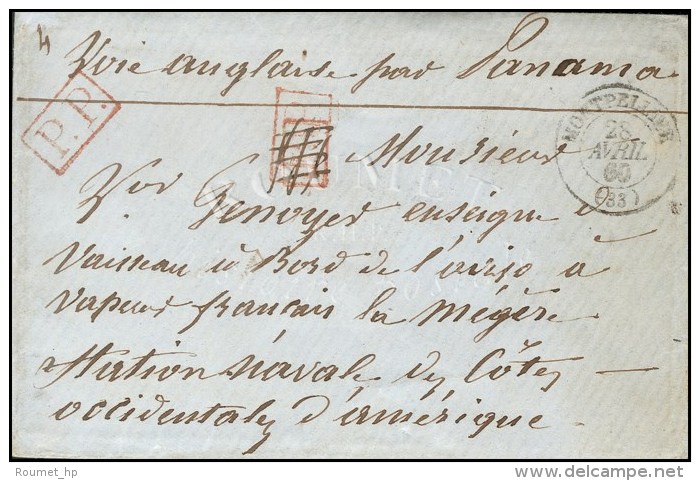 4
Voie anglaise par Panama
P.P.
MONTPELLIER
28
AVRIL
60
(33)
Monsieur
Vor Genoyer enseigne de
vaisseau à Bord de l'aviso à
vapeur français la Mégère
Station navale des Côtes —
occidentales d'amérique.
ROUMET
Roumet_hp
delcampe.net